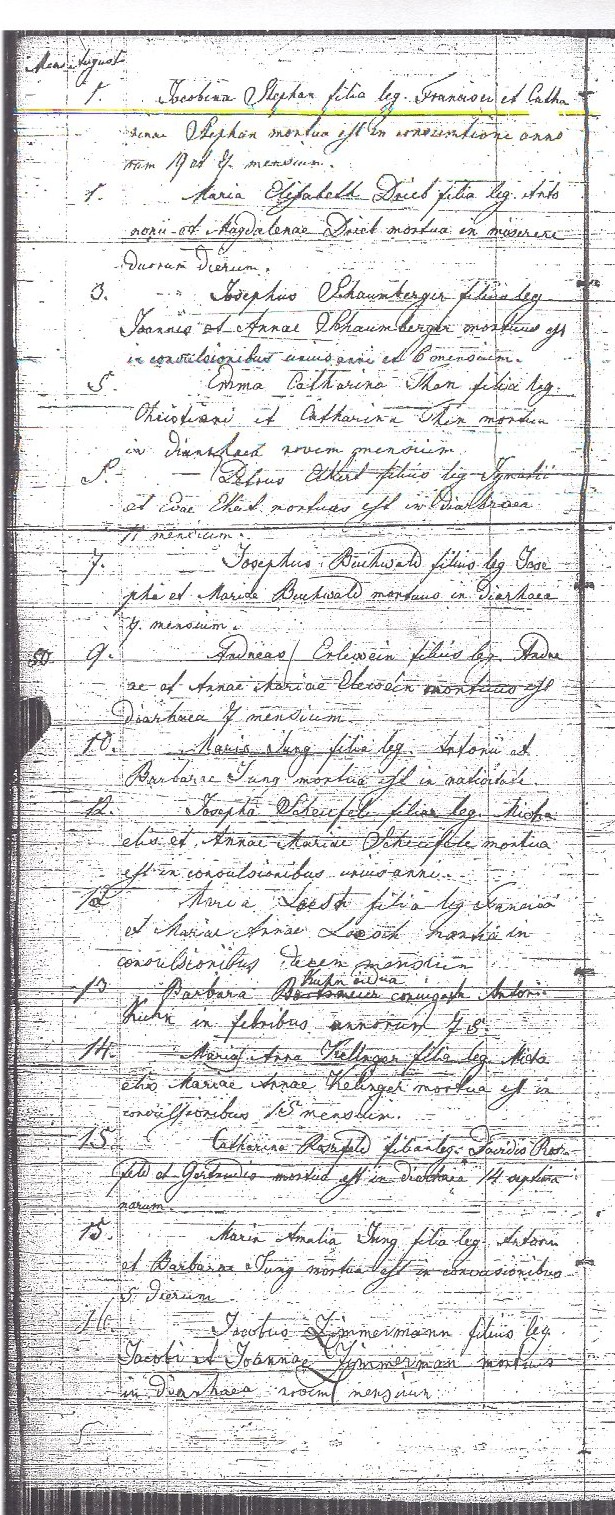 Mense August
1. Jacobina Stephan filia leg. Francisci et Catha
rinae Stephan mortua est in consumtione anno
rum 19 et 7. mensium.
1. Maria Elisabeth Drieb filia leg. Anto
nii et Magdalenae Drieb mortua in miserere
duorum dierum.
3. Josephus Schaumberger filius leg
Joannis et Annae Schaumberger mortuus est
in convulsionibus unius anni et 6 mensium.
5. Emma Catharina Then filia leg.
Christiani et Catharina Then mortua
in diarrhaea novem mensium
5. Petrus Ekert filius leg Ignatii
et Evae Ekert mortuus est in diarrhaea
11 mensium.
7. Josephus Buchwald filius leg Jose
phi et Mariae Buchwald mortuus in diarhaea
7. mensium.
50 9. Andreas Erlewein filius leg. Andre
ae et Annae Mariae Elewein mortuus est
Diarhaea 7 mensium.
10. Maria Jung filia leg. Antonii et
Barbarae Jung mortua est in nativitate.
12. Josepha Scheifele filia leg. Micha
elis et Annae Mariae Scheifele mortua
est in convulsionibus unius anni.
12 Maria Loesh filia leg Francisci
et Mariae Annae Loesch mortua in
convulsionibus decem mensium
Kuhn vidua
13 Barbara conjugata Antonii
Kuhn in febribus annorum 75.
14. Maria Anna Kelinger filia leg. Micha
elis Mariae Annae Kelinger mortua est in
convulsionibus 15 mensium.
15. Catharina Rosnfeld filia leg. Davidis Rosn
feld et Gertrudis mortua est in diarhaea 14 septima
narum.
15. Maria Amalia Jung filia leg. Antonii
et Barbarae Jung mortua est in convusionibus
5 dierum
16. Jacobus Zimmermann filius leg.
Jacobi et Joannae Zimmerman mortuus
in diarhaea novem mensium